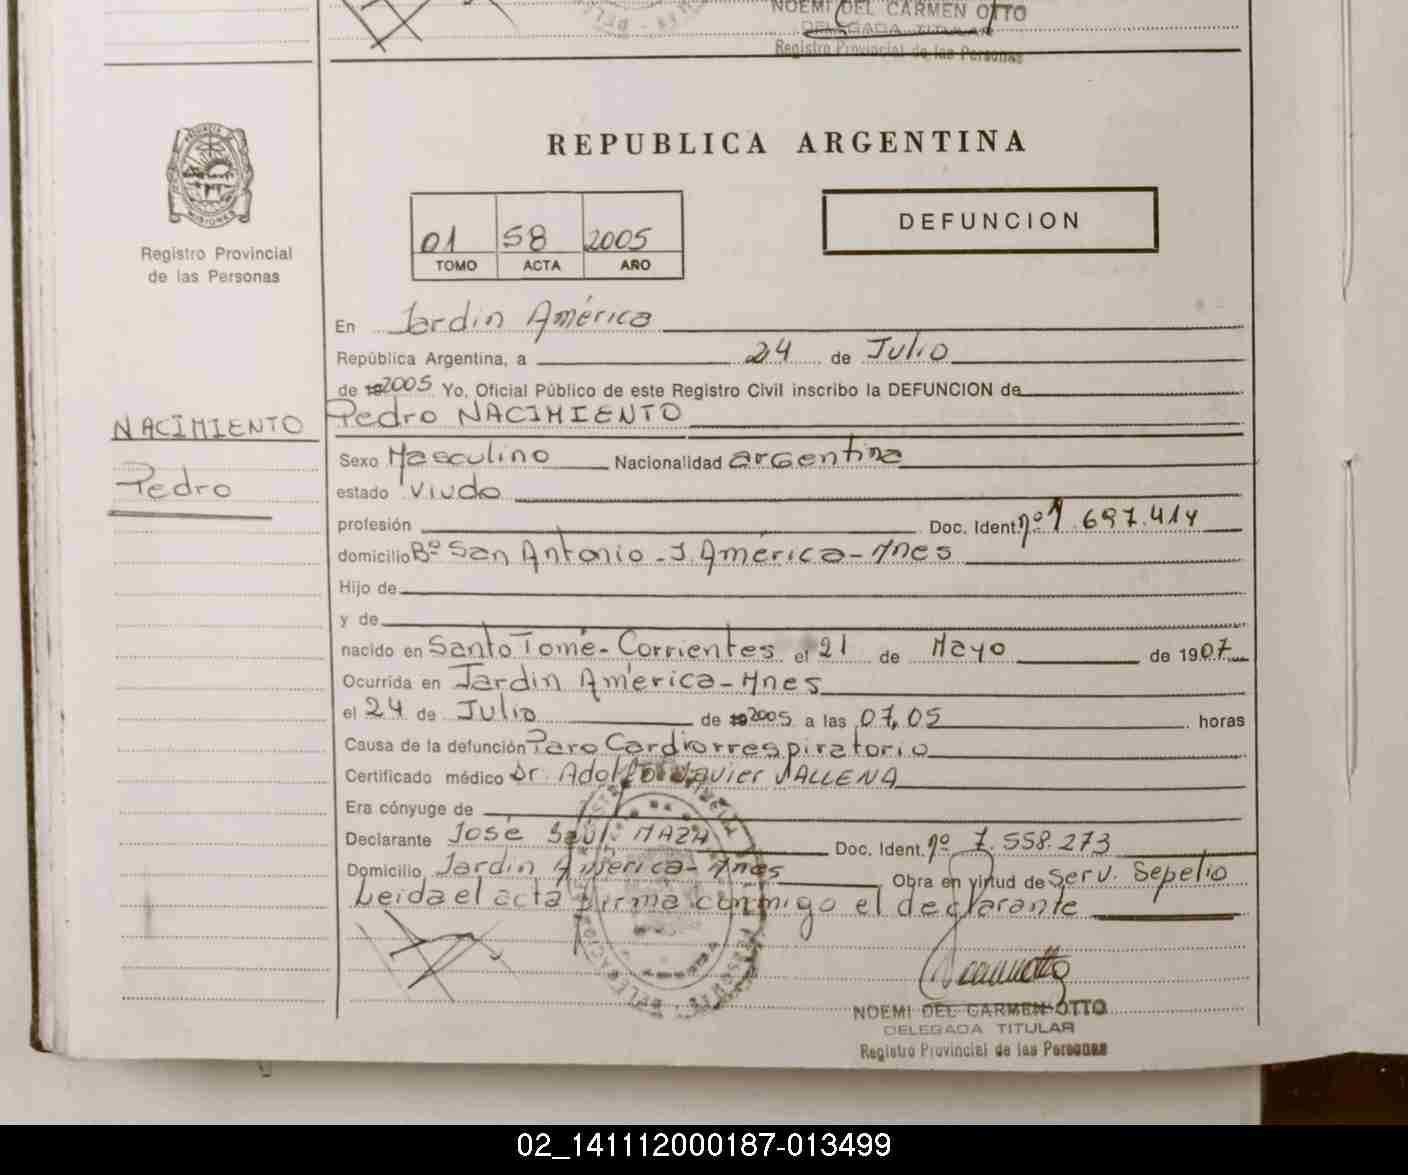 NOEMI DEL CARMEN OTTO
DELEGADA TITULAR
Registro Provincial de las Personas
PROVINCIA DE
MISIONES
Registro Provincial
de las Personas
REPUBLICA ARGENTINA
01 58 2005
TOMO ACTA AÑO
DEFUNCION
En Jardin América
República Argentina, a 24 de Julio
de 2005 Yo, Oficial Público de este Registro Civil inscribo la DEFUNCION de
NACIMIENTO
Pedro
Pedro NACIMIENTO
Sexo Masculino Nacionalidad argentina
estado Viudo
profesión Doc. Ident. nº 1.697.414
domicilio Bº San Antonio - J. América - Mnes
Hijo de
y de
nacido en Santo Tomé - Corrientes el 21 de Mayo de 1907
Ocurrida en Jardin América - Mnes
el 24 de Julio de 2005 a las 07,05 horas
Causa de la defunción Paro Cardiorrespiratorio
Certificado médico Dr. Adolfo Javier VALLENA
Era cónyuge de
Declarante José Saúl MAZA Doc. Ident. nº 7.558.273
Domicilio Jardin America - Mnes Obra en virtud de Serv. Sepelio
Leida el acta firma conmigo el declarante
NOEMI DEL CARMEN OTTO
DELEGADA TITULAR
Registro Provincial de las Personas
02_141112000187-013499